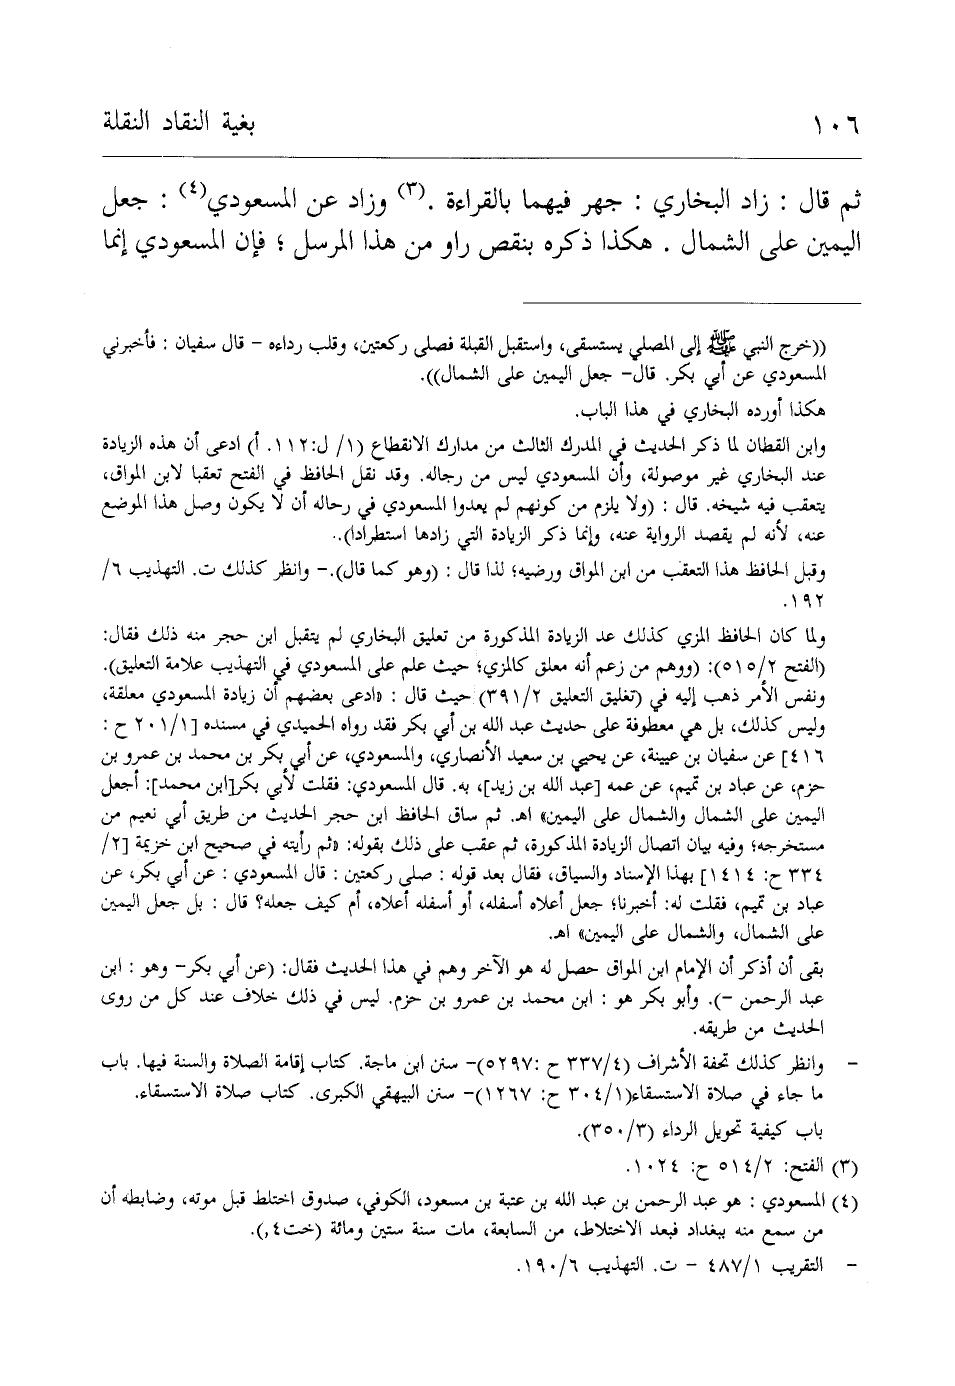 ١٠٦ بغية النقاد النقلة
ثم قال : زاد البخاري : جهر فيهما بالقراءة .(٣) وزاد عن المسعودي(٤) : جعل
اليمين على الشمال . هكذا ذكره بنقص راو من هذا المرسل ؛ فإن المسعودي إنما
((خرج النبي ﷺ إلى المصلي يستسقى، واستقبل القبلة فصلى ركعتين، وقلب رداءه – قال سفيان : فأخبرني
المسعودي عن أبي بكر. قال– جعل اليمين على الشمال)).
هكذا أورده البخاري في هذا الباب.
وابن القطان لما ذكر الحديث في المدرك الثالث من مدارك الانقطاع (١/ ل:١١٢. أ) ادعى أن هذه الزيادة
عند البخاري غير موصولة، وأن المسعودي ليس من رجاله. وقد نقل الحافظ في الفتح تعقبا لابن المواق،
يتعقب فيه شيخه. قال : (ولا يلزم من كونهم لم يعدوا المسعودي في رحاله أن لا يكون وصل هذا الموضع
عنه، لأنه لم يقصد الرواية عنه، وإنما ذكر الزيادة التي زادها استطرادا)..
وقبل الحافظ هذا التعقب من ابن المواق ورضيه؛ لذا قال : (وهو كما قال).– وانظر كذلك ت. التهذيب ٦/
١٩٢.
ولما كان الحافظ المزي كذلك عد الزيادة المذكورة من تعليق البخاري لم يتقبل ابن حجر منه ذلك فقال:
(الفتح ٥١٥/٢): (ووهم من زعم أنه معلق كالمزي؛ حيث علم على المسعودي في التهذيب علامة التعليق).
ونفس الأمر ذهب إليه في (تغليق التعليق ٣٩١/٢) حيث قال : «ادعى بعضهم أن زيادة المسعودي معلقة،
وليس كذلك، بل هي معطوفة على حديث عبد الله بن أبي بكر فقد رواه الحميدي في مسنده [٢٠١/١ ح :
٤١٦] عن سفيان بن عيينة، عن يحيي بن سعيد الأنصاري، والمسعودي، عن أبي بكر بن محمد بن عمرو بن
حزم، عن عباد بن تميم، عن عمه [عبد الله بن زيد]، به. قال المسعودي: فقلت لأبي بكر[ابن محمد]: أجعل
اليمين على الشمال والشمال على اليمين» اهـ. ثم ساق الحافظ ابن حجر الحديث من طريق أبي نعيم من
مستخرجه؛ وفيه بيان اتصال الزيادة المذكورة، ثم عقب على ذلك بقوله: «ثم رأيته في صحيح ابن خزيمة [٢/
٣٣٤ ح: ١٤١٤] بهذا الإسناد والسياق، فقال بعد قوله : صلى ركعتين : قال المسعودي : عن أبي بكر، عن
عباد بن تميم، فقلت له: أخبرنا؛ جعل أعلاه أسفله، أو أسفله أعلاه، أم كيف جعله؟ قال : بل جعل اليمين
على الشمال، والشمال على اليمين» اهـ.
بقى أن أذكر أن الإمام ابن المواق حصل له هو الآخر وهم في هذا الحديث فقال: (عن أبي بكر– وهو : ابن
عبد الرحمن –). وأبو بكر هو : ابن محمد بن عمرو بن حزم. ليس في ذلك خلاف عند كل من روى
الحديث من طريقه.
– وانظر كذلك تحفة الأشراف (٣٣٧/٤ ح :٥٢٩٧)– سنن ابن ماجة. كتاب إقامة الصلاة والسنة فيها. باب
ما جاء في صلاة الاستسقاء(٣٠٤/١ ح: ١٢٦٧)– سنن البيهقي الكبرى. كتاب صلاة الاستسقاء.
باب كيفية تحويل الرداء (٣٥٠/٣).
(٣) الفتح: ٥١٤/٢ ح: ١٠٢٤.
(٤) المسعودي : هو عبد الرحمن بن عبد الله بن عتبة بن مسعود، الكوفي، صدوق اختلط قبل موته، وضابطه أن
من سمع منه ببغداد فبعد الاختلاط، من السابعة، مات سنة ستين ومائة (خت٤,).
– التقريب ٤٨٧/١ – ت. التهذيب ١٩٠/٦.